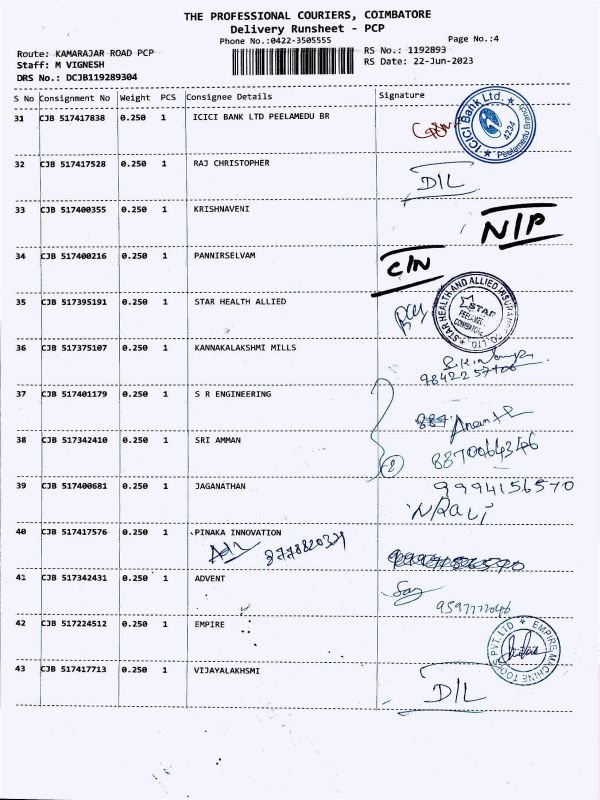 THE PROFESSIONAL COURIERS, COIMBATORE
Delivery Runsheet - PCP
Phone No.:0422-3505555
Page No.:4
Route: KAMARAJAR ROAD PCP
RS No.: 1192893
Staff: M VIGNESH
RS Date: 22-Jun-2023
DRS No.: DCJB119289304
S No Consignment No Weight PCS Consignee Details Signature
31 CJB 517417838 0.250 1 ICICI BANK LTD PEELAMEDU BR
ICICI Bank Ltd. Peelamedu Branch 4234
32 CJB 517417528 0.250 1 RAJ CHRISTOPHER
D/L
33 CJB 517400355 0.250 1 KRISHNAVENI
N/P
34 CJB 517400216 0.250 1 PANNIRSELVAM
C/N
35 CJB 517395191 0.250 1 STAR HEALTH ALLIED
STAR HEALTH AND ALLIED INSURANCE CO. LTD. STAR
36 CJB 517375107 0.250 1 KANNAKALAKSHMI MILLS
37 CJB 517401179 0.250 1 S R ENGINEERING
Ananth
38 CJB 517342410 0.250 1 SRI AMMAN
8870064346
2
39 CJB 517400681 0.250 1 JAGANATHAN
9994156570
N Ravi
40 CJB 517417576 0.250 1 PINAKA INNOVATION
41 CJB 517342431 0.250 1 ADVENT
42 CJB 517224512 0.250 1 EMPIRE
EMPIRE MACHINE TOOLS PVT. LTD
43 CJB 517417713 0.250 1 VIJAYALAKHSMI
D/L